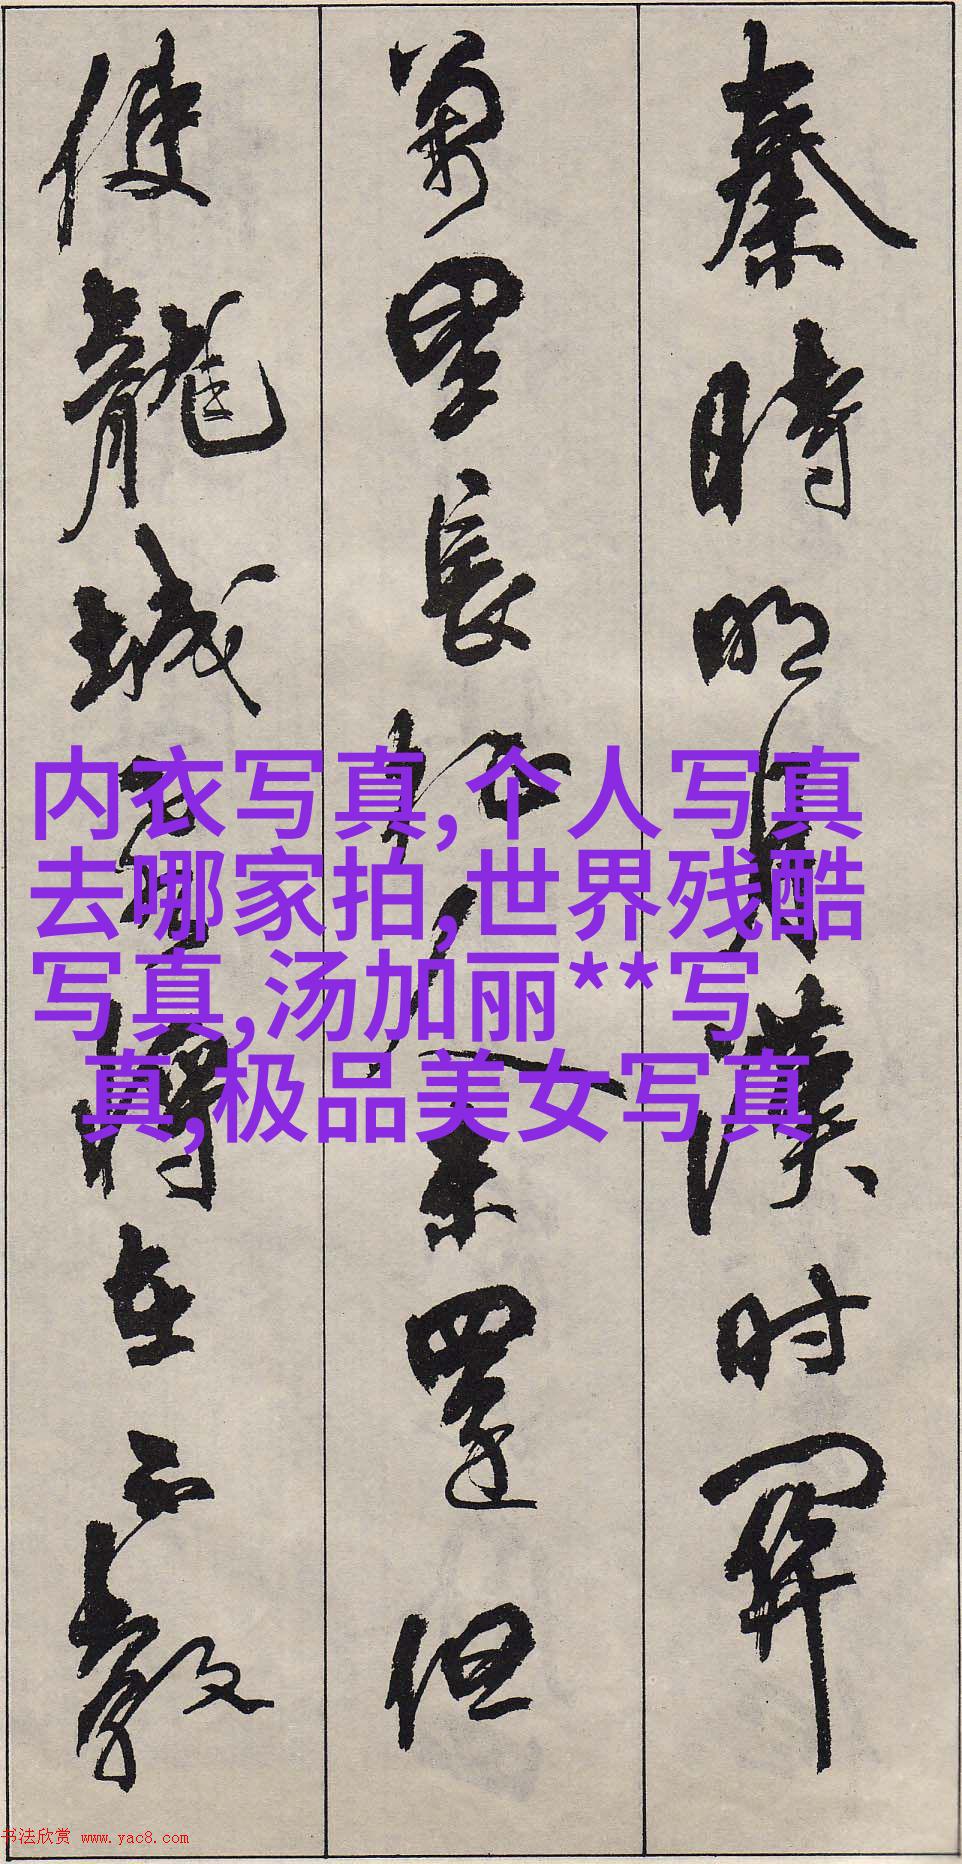 秦時明月漢时關
萬里長征人未還但
使龍城飛將在不教
内衣写真,个人写真
去哪家拍,世界残酷
写真,汤加丽**写
真,极品美女写真
书法欣赏 www.yac8.com